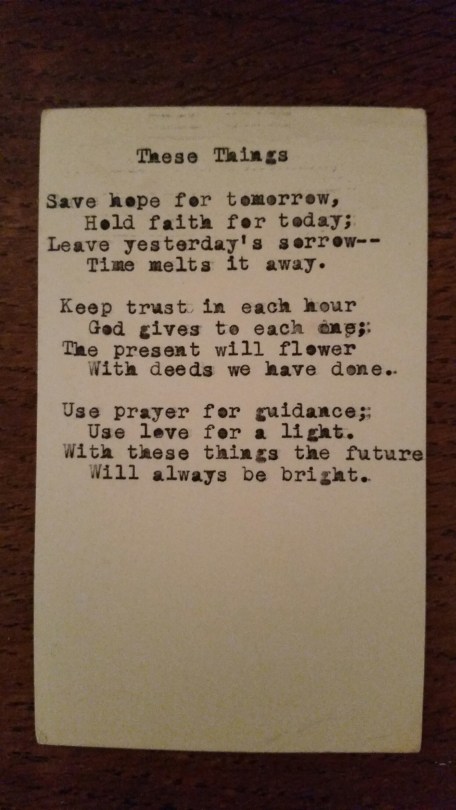 These Things
Save hope for tomorrow,
Hold faith for today;
Leave yesterday's sorrow--
Time melts it away.
Keep trust in each hour
God gives to each one;
The present will flower
With deeds we have done.
Use prayer for guidance;
Use love for a light.
With these things the future
Will always be bright.